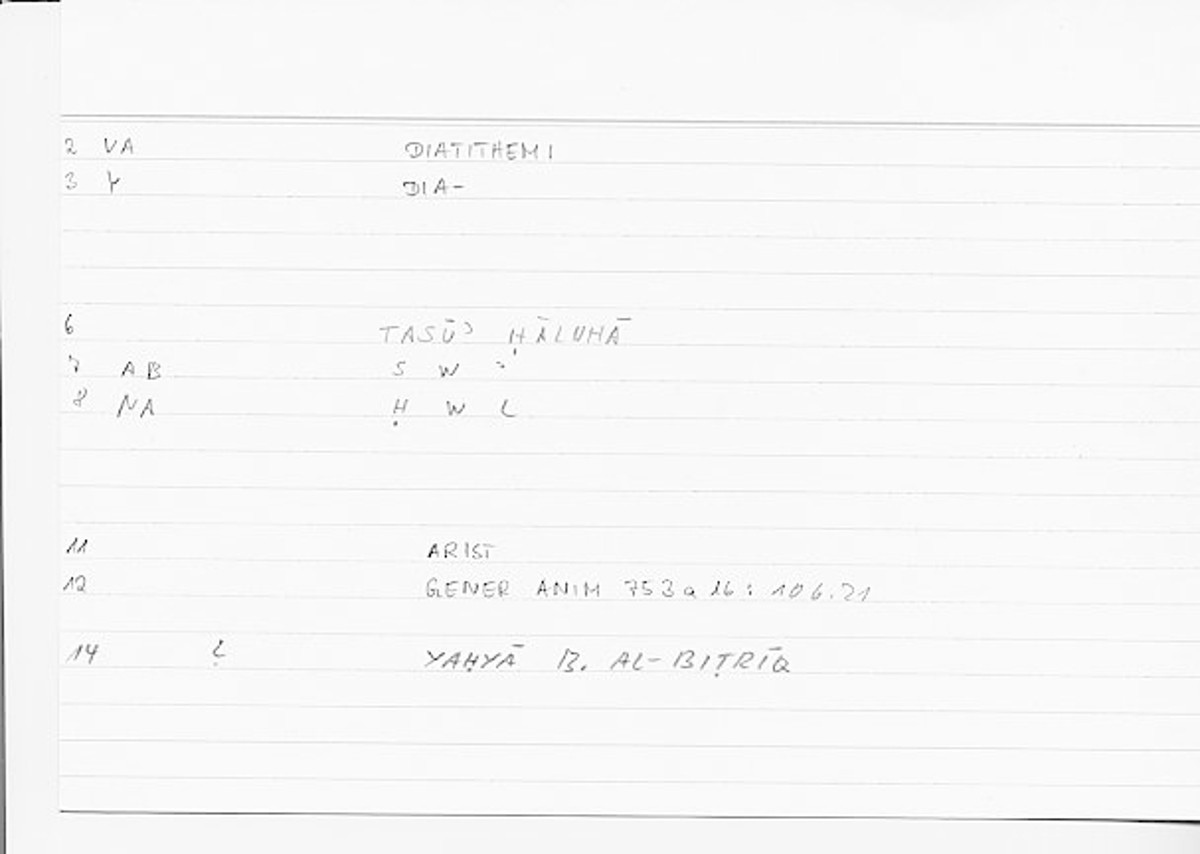 2 VA DIATITHEMI
3 Y DIA-
6 TASŪʾ ḤĀLUHĀ
7 AB S W ʾ
8 NA Ḥ W L
11 ARIST
12 GENER ANIM 753a16: 106.21
14 YAḤYĀ B. AL-BIṬRĪQ